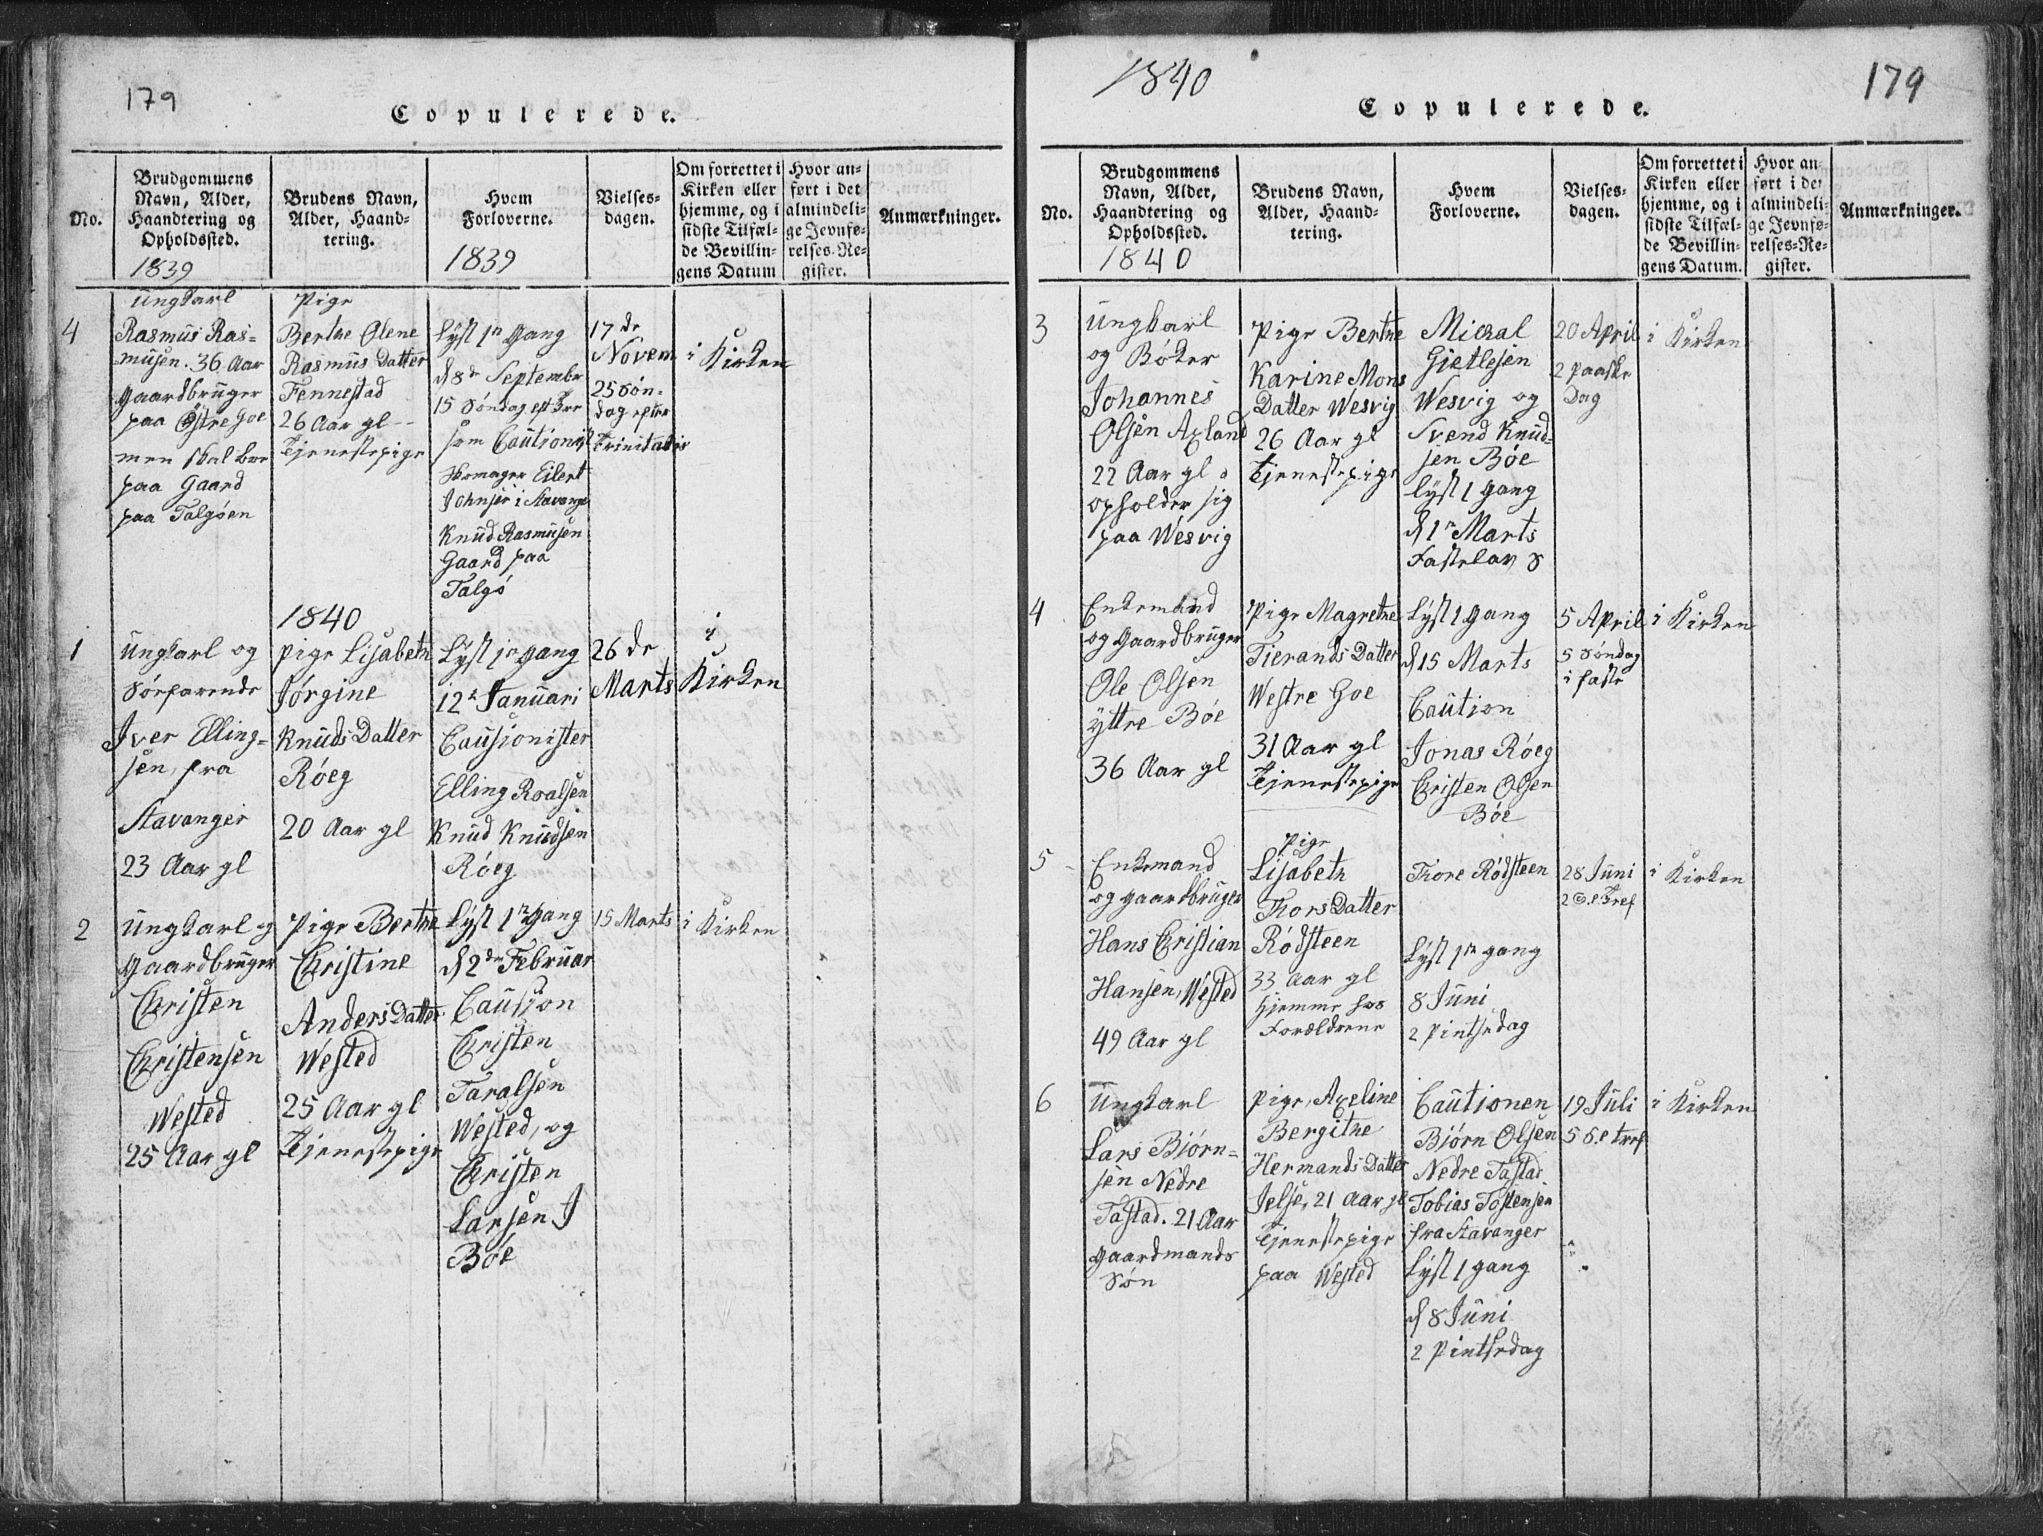 179
Copulerede.
No.
Brudgommens
Navn, Alder,
Haandtering og
Opholdssted.
1839
Brudens Navn,
Alder, Haand-
tering.
Hvem
Forloverne.
1839
Vielses-
dagen.
Om forrettet i
Kirken eller
hjemme, og i
sidste Tilfæl-
de Bevillin-
gens Datum
Hvor an-
ført i det
almindeli-
ge Jevnfø-
relses-Re-
gister.
Anmærkninger.
4
Ungkarl
Rasmus Ras-
musen. 36 Aar
Gaardbruger
paa Østre Goe
men skal boe
paa Gaard
paa Talgøen
Pige
Berthe Olene
Rasmus Datter
Fennestad
26 Aar gl
Tjenestepige
Lyst 1n Gang
d 8de Septembr
15 Søndag eft Tre
som Cautionist
Skomager Eilert
Johnsen i Stavanger
Knud Rasmusen
Gaard paa
Talgø
17 de
Novem
25 Søn-
dag efter
Trinitatis
i Kirken
1840
1
Ungkarl og
Søefarende
Iver Elling-
sen, fra
Stavanger
23 Aar gl
Pige Lisabeth
Jørgine
Knuds Datter
Røeg
20 Aar gl
Lyst 1n Gang
12te Januari
Causionister
Elling Roalsen
Knud Knudsen
Røeg
26 de
Marts
i
Kirken
2
Ungkarl og
Gaardbruger
Christen
Christensen
Wested
25 Aar gl
Pige Berthe
Christine
Anders Datter
Wested
25 Aar gl
Tjenestepige
Lyst 1n Gang
d 2den Februar
Causion
Christen
Taralsen
Wested, og
Christen
Larsen I
Bøe
15 Marts
i Kirken
1840
179
Copulerede.
No.
Brudgommens
Navn, Alder,
Haandtering og
Opholdssted.
1840
Brudens Navn,
Alder, Haand-
tering.
Hvem
Forloverne.
Vielses-
dagen.
Om forrettet i
Kirken eller
hjemme, og i
sidste Tilfæl-
de Bevillin-
gens Datum.
Hvor an-
ført i det
almindeli-
ge Jevnfø-
relses-Re-
gister.
Anmærkninger.
3
Ungkarl
og Bøker
Johannes
Olsen Axland
22 Aar gl
opholder sig
paa Wesvig
Pige Berthe
Karine Mons
Datter Wesvig
26 Aar gl
Tjenestepige
Mickal
Gjetlesen
Wesvig og
Svend Knud-
sen Bøe
Lyst 1 Gang
d 1n Marts
Fastelav S
20 April
2 Paaske
Dag
i Kirken
4
Enkemand
og Gaardbruger
Ole Olsen
Yttre Bøe
36 Aar gl
Pige Magrethe
Tierands Datter
Westre Goe
31 Aar gl
Tjenestepige
Lyst 1 Gang
d 15 Marts
Caution
Jonas Røeg
Christen Olsen
Bøe
5 April
5 Søndag
i Faste
i Kirken
5
Enkemand
og Gaardbruger
Hans Christian
Hansen, Wested
49 Aar gl
Pige
Lisabeth
Thors Datter
Rødsteen
33 Aar gl
Hjemme hos
Forældrene
Thore Rødsteen
Lyst 1n gang
8 Juni
2 Pintsedag
28 Juni
2 S. e Tref
i Kirken
6
Ungkarl
Lars Biørn-
sen Nedre
Tastad. 21 Aar
Gaardmands
Søn
Pige, Axeline
Bergithe
Hermands Datter
Jelse, 21 Aar gl
Tjenestepige
paa Wested
Cautionen
Biørn Olsen
Nedre Tastad
Tobias Tostensen
fra Stavanger
Lyst 1 gang
d 8 Juni
2 Pintsedag
19 Juli
5 S. e Tref
i Kirken